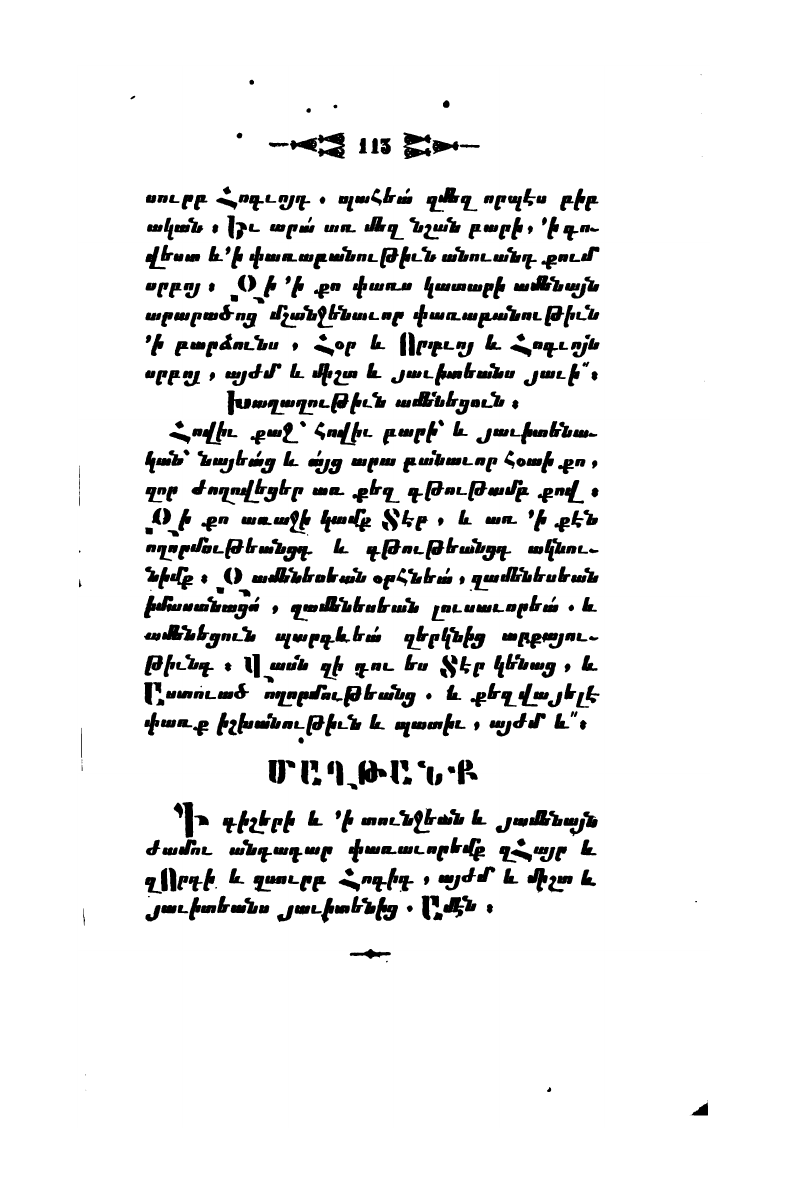 113
սուրբ Հոգւոյդ ․ պահեա՛ զմեզ որպէս բիբ
ական ։ Եւ արա՛ առ մեզ նշան բարի, ՚ի գո-
վեստ և ՚ի փառաբանութիւն անուանդ քում
սրբոյ ։ Զի ՚ի քո փառս կատարի ամենայն
արարածոց մշտնջենաւոր փառաբանութիւն
՚ի բարձունս , Հօր և Որդւոյ և Հոգւոյն
սրբոյ , այժմ և միշտ և յաւիտեանս յաւի՟։
Խաղաղութիւն ամենեցուն ։
Հովիւ քաջ՝ հովիւ բարի՝ և յաւիտենա-
կան՝ նայեա՛ց և ա՛յց արա բանաւոր հօտի քո ,
զոր ժողովեցեր առ քեզ գթութեամբ քով ։
Զի քո առաջի կամք Տէր , և առ ՚ի քէն
ողորմութեանցդ և գթութեանցդ ակնու-
նիմք ։ Զամենեսեան օրհնեա՛ , զամենեսեան
իմաստնացո՛ , զամենեսեան լուսաւորեա՛ ․ և
ամենեցուն պարգևեա՛ զերկնից արքայու-
թիւնդ ։ Վասն զի դու ես Տէր կենաց , և
Աստուած ողորմութեանց ․ և քեզ վայելէ
փառք իշխանութիւն և պատիւ , այժմ և՟։
ՄԱՂԹԱՆՔ
Ի գիշերի և ՚ի տունջեան և յամենայն
ժամու անդադար փառաւորեմք զՀայր և
զՈրդի և զսուրբ Հոգիդ , այժմ և միշտ և
յաւիտեանս յաւիտենից ․ Ամէն ։